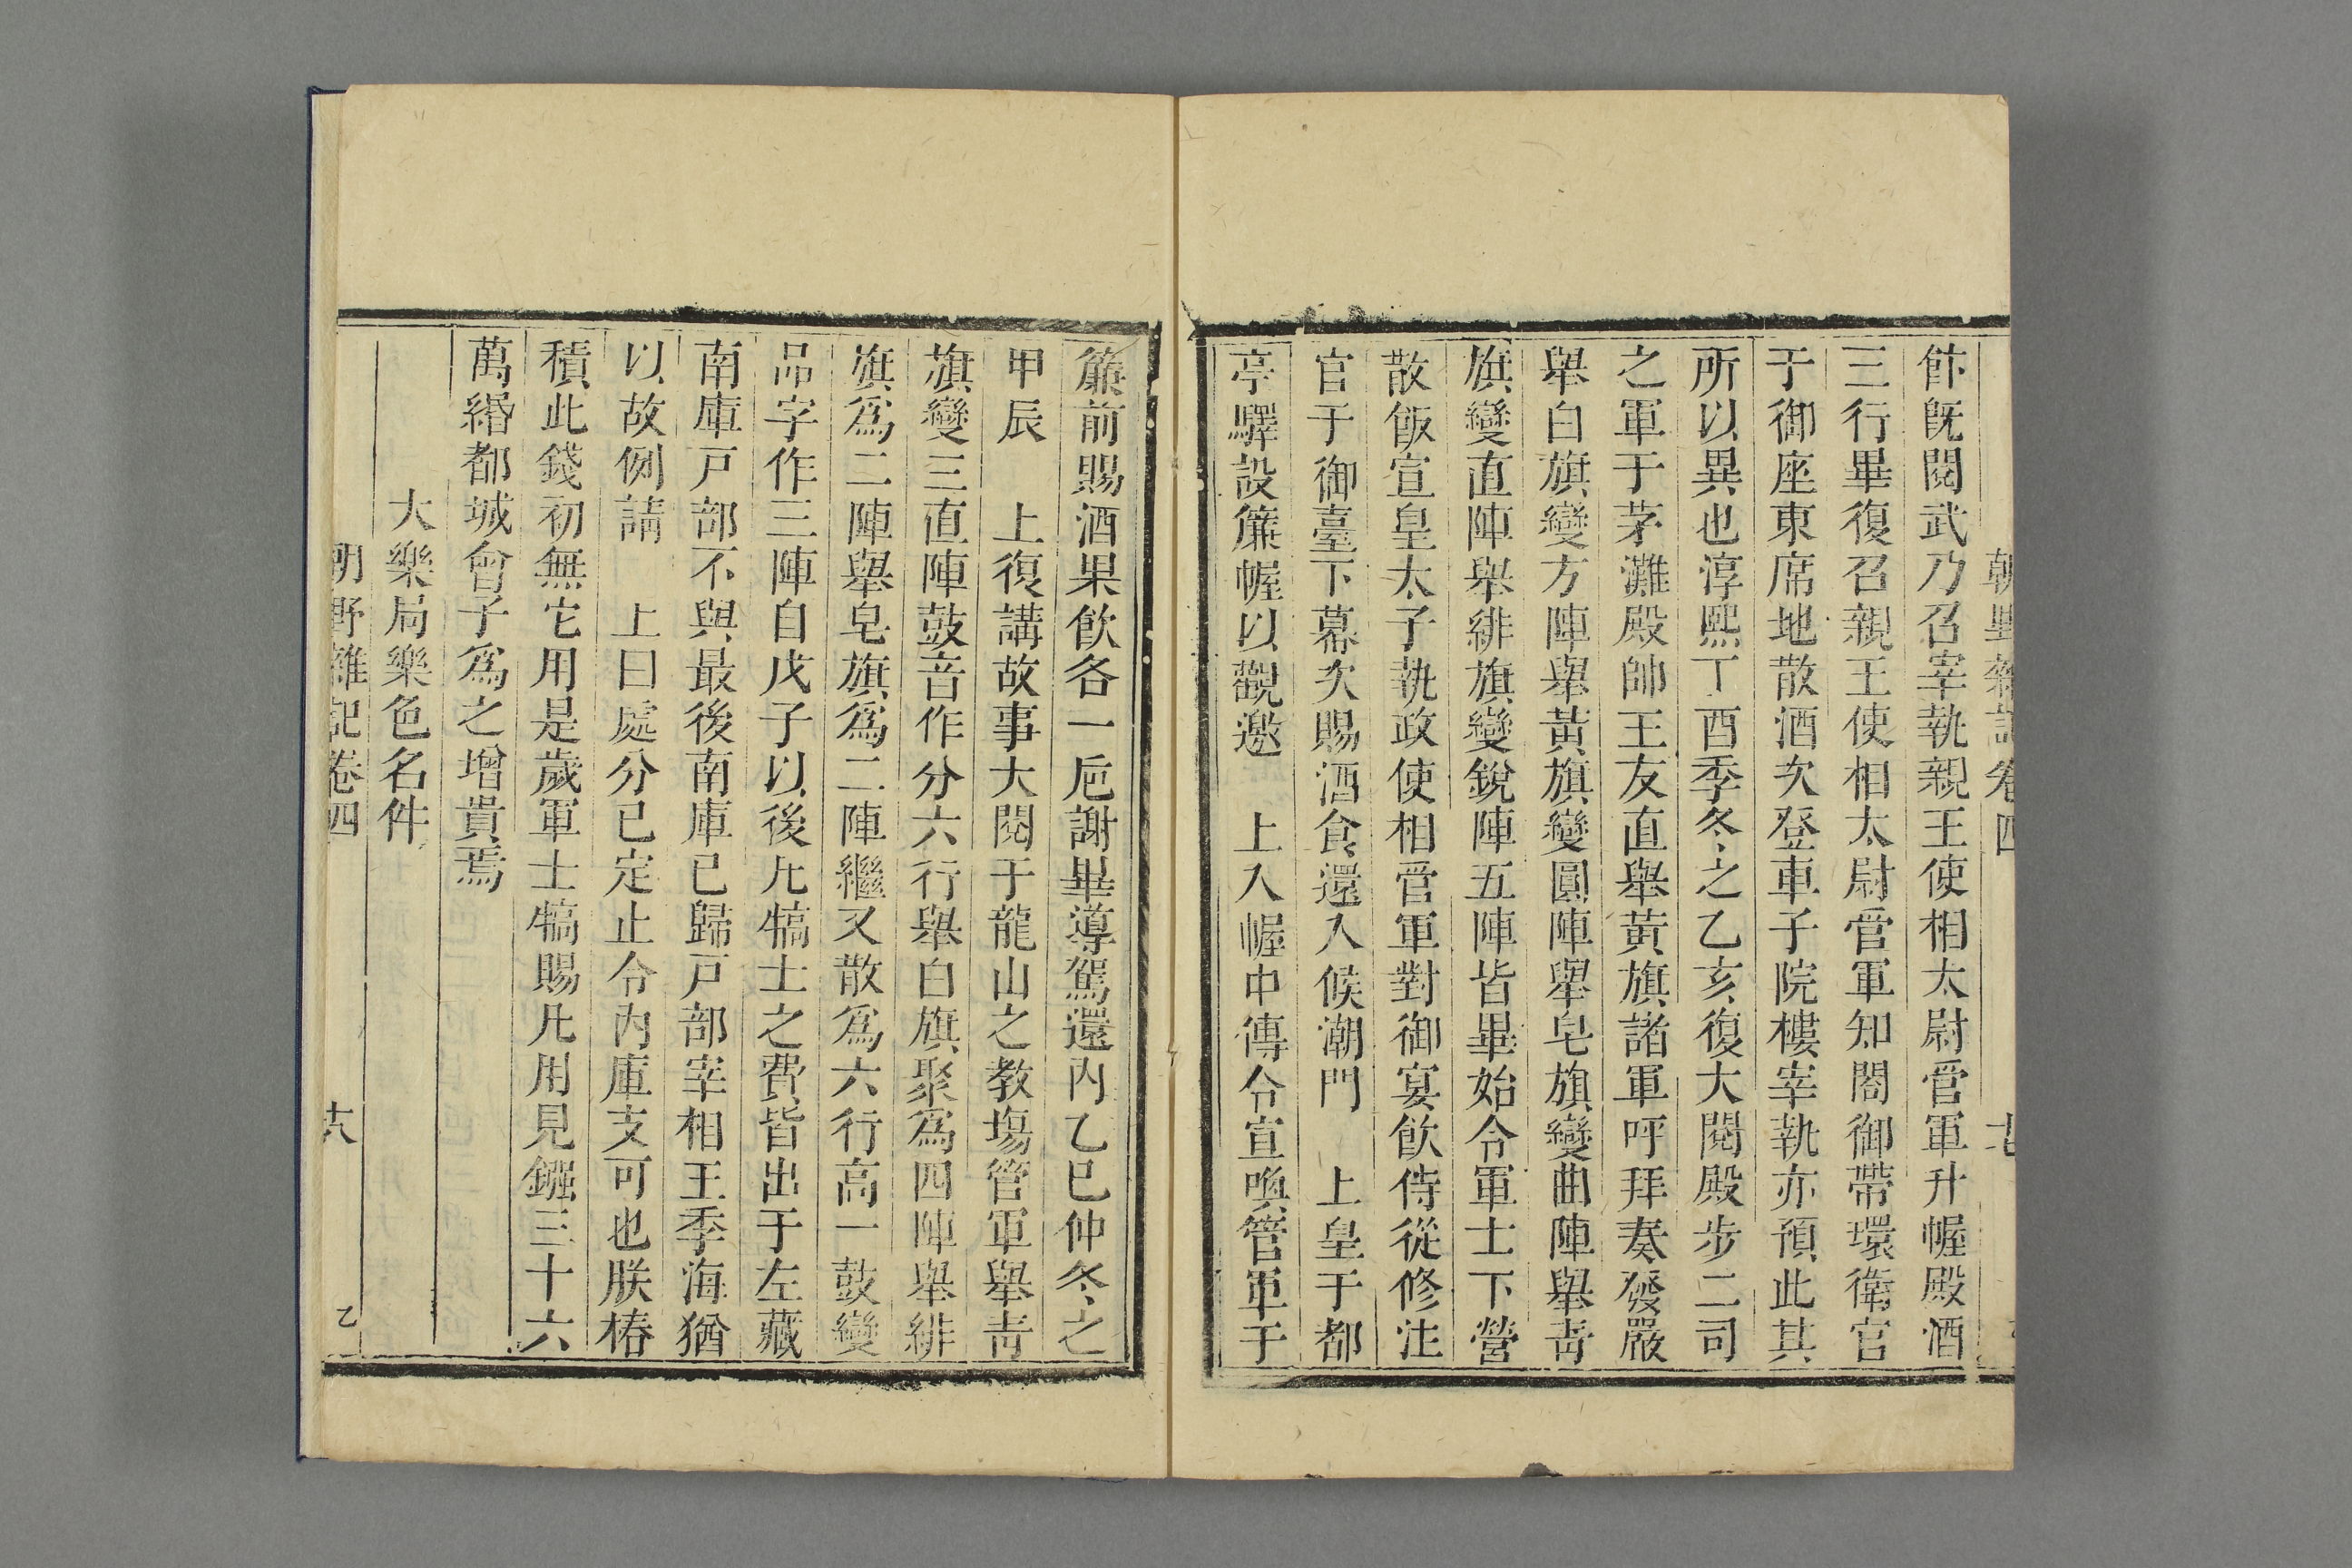 朝野雜記卷四 十七
飰既閱武乃召宰執親王使相太尉管軍升幄殿酒
三行畢復召親王使相太尉管軍知閤御帶環衛官
于御座東席地散酒次登車子院樓宰執亦預此其
所以異也淳熙丁酉季冬之乙亥復大閱殿步二司
之軍于茅灘殿帥王友直舉黃旗諸軍呼拜奏發嚴
舉白旗變方陣舉黃旗變圓陣舉皂旗變曲陣舉青
旗變直陣舉緋旗變銳陣五陣皆畢始令軍士下營
散飯宣皇太子執政使相管軍對御宴飲侍從修注
官于御臺下幕次賜酒食還入候潮門 上皇于都
亭驛設簾幄以觀邀 上入幄中傳令宣喚管軍于
簾前賜酒果飲各一巵謝畢導駕還內乙巳仲冬之
甲辰 上復講故事大閱于龍山之教塲管軍舉青
旗變三直陣鼓音作分六行舉白旗聚爲四陣舉緋
旗爲二陣舉皂旗爲二陣繼又散爲六行高一鼓變
品字作三陣自戊子以後凡犒士之費皆出于左藏
南庫戸部不與最後南庫已歸戸部宰相王季海猶
以故例請 上曰處分已定止令內庫支可也朕樁
積此錢初無它用是歲軍士犒賜凡用見鏹三十六
萬緡都城會子爲之增貴焉
大樂局樂色名件
朝野雜記卷四 十八 乙